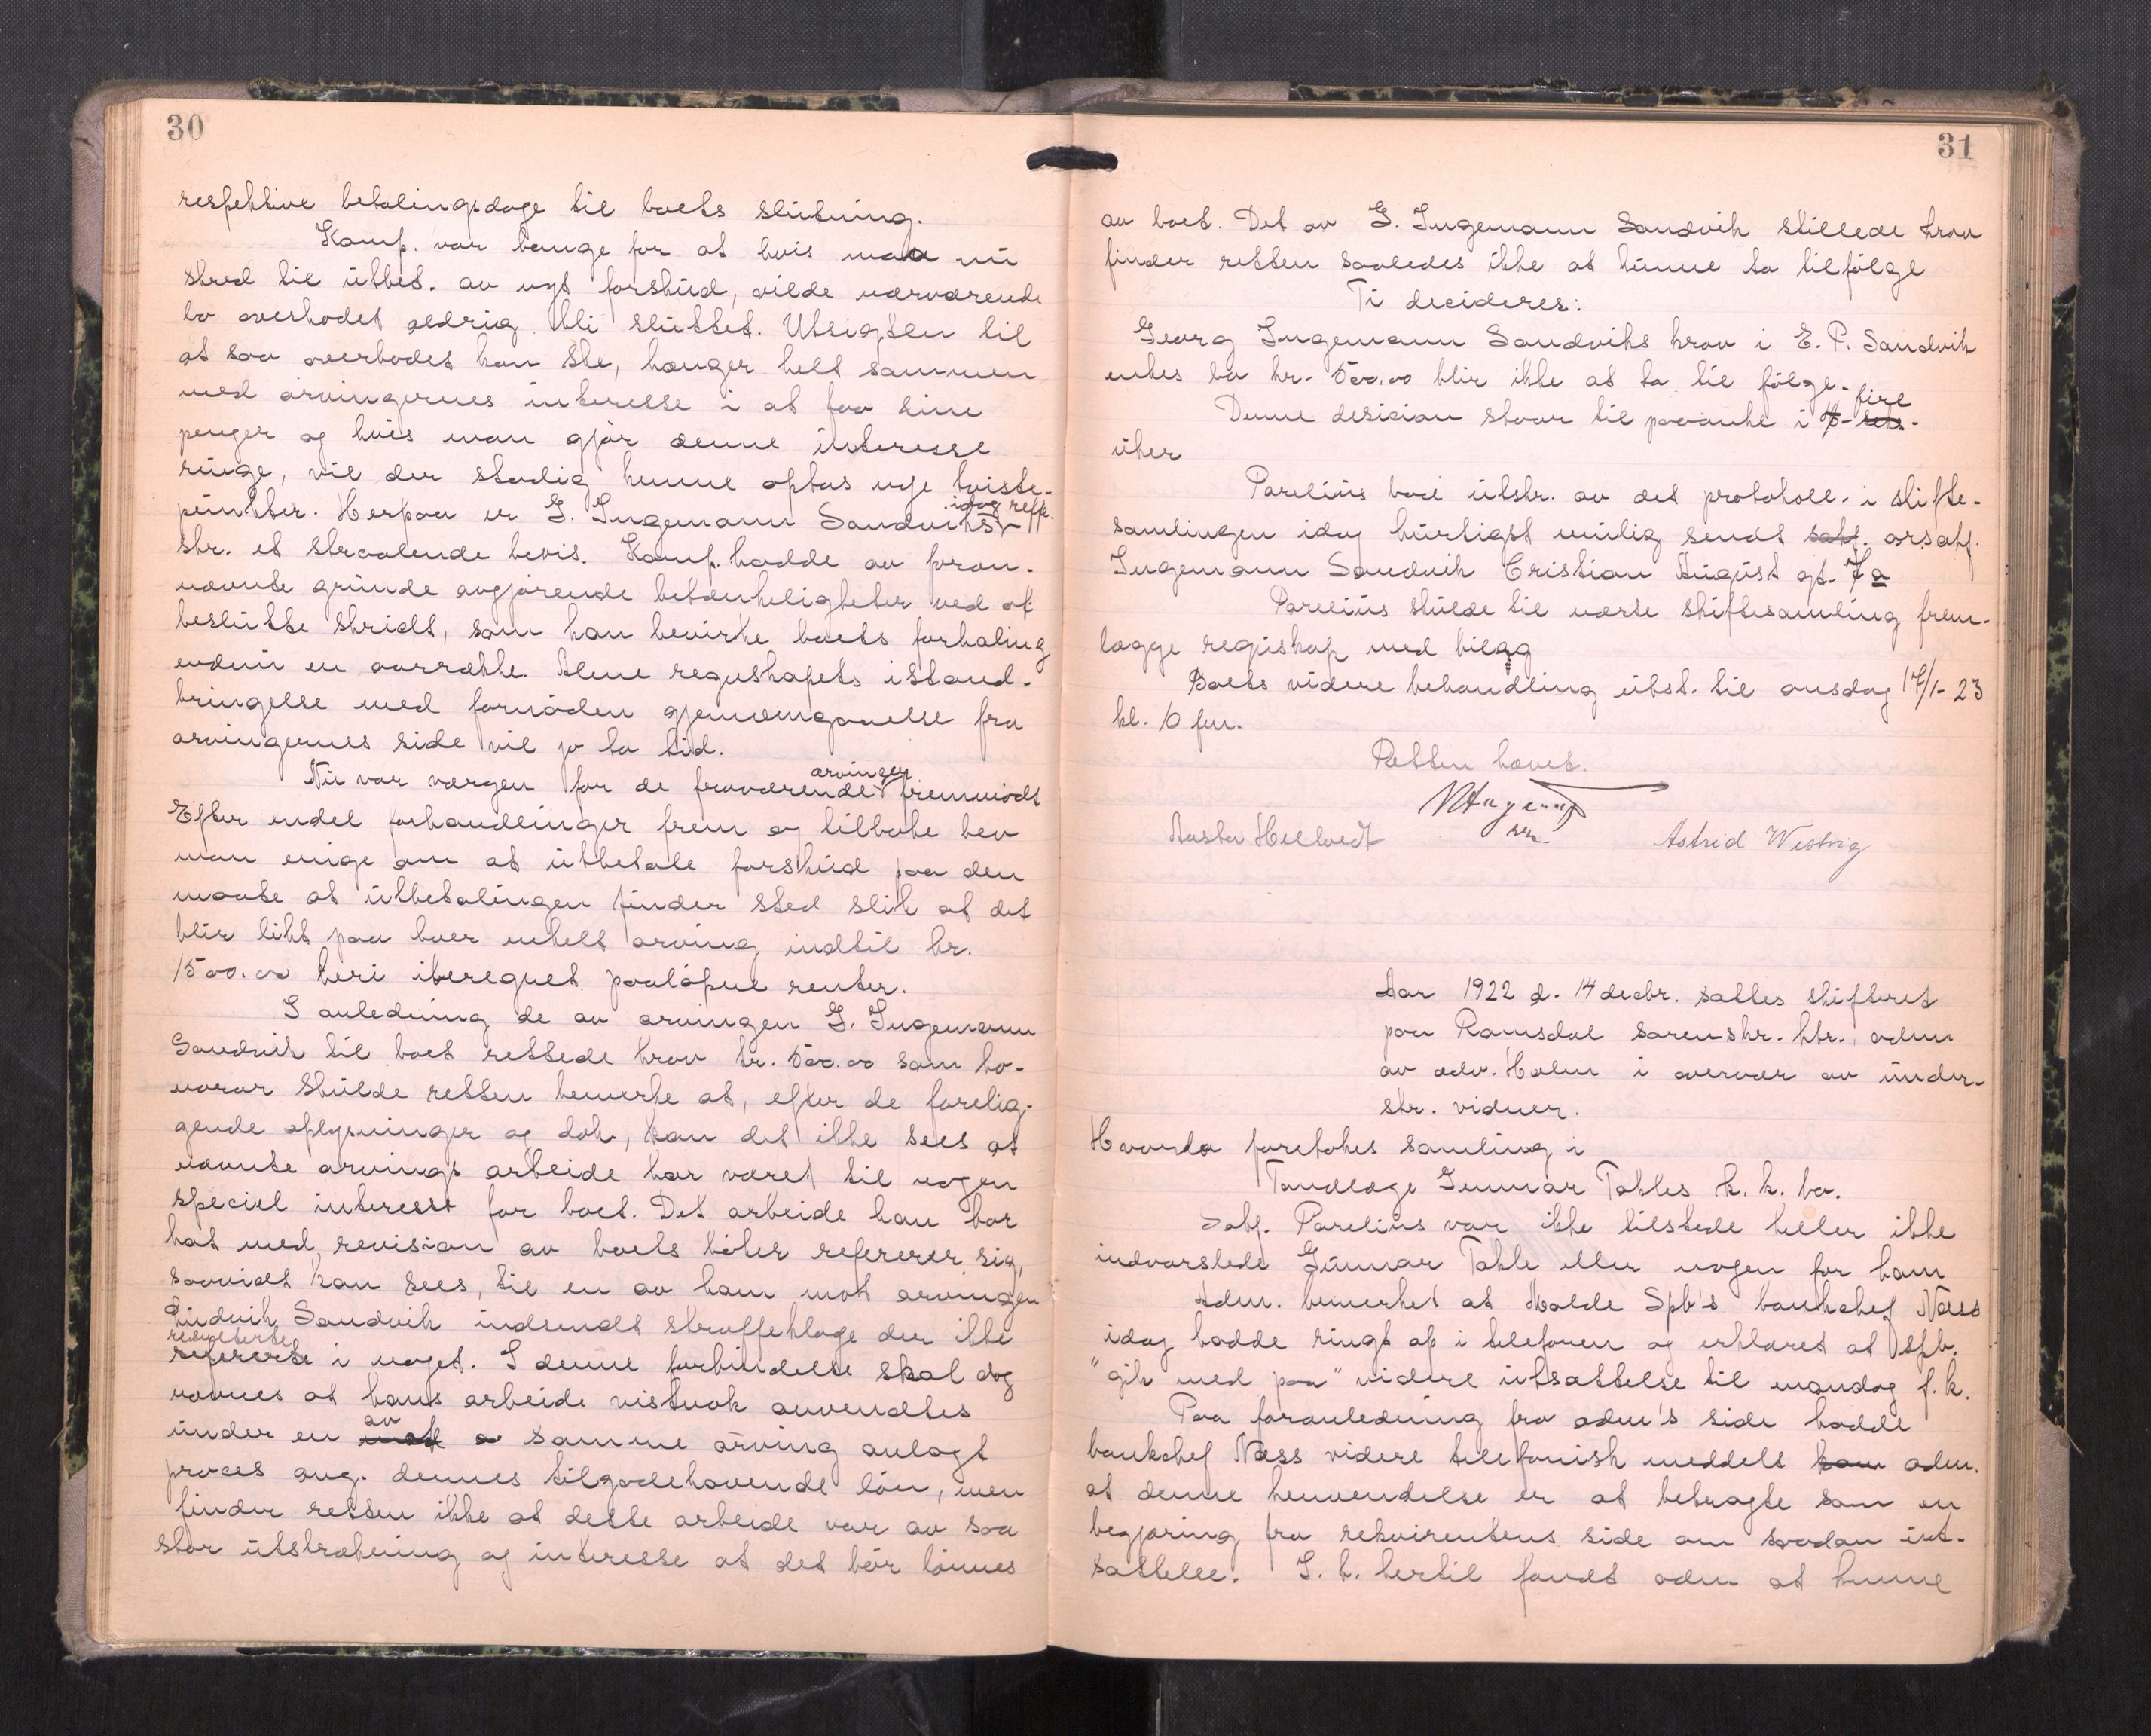 30
respektive betalingsdage til boets slutning.
Komp. var bange for at hvis man nu
skred til utbet. av nyt forskud, vilde nærværende
bo overhodet aldrig bli sluttet. Utsigten til
at saa overhodet kan ske, hænger helt sammen
med arvingernes interesse i at faa sine
penger og hvis man gjør denne interesse
ringe, vil der stadig kunne optas nye tviste-
punkter. Herpaa er G. Ingemann Sandviks idag refr.
skr. et straalende bevis. Komp. hadde av foran-
nævnte grunde avgjørende betænkeligheter ved at
beslutte skridt, som kan bevirke boets forhaling
endnu en aarrække. Alene regnskapets istand-
bringelse med fornøden gjennemgaaelse fra
arvingernes side vil jo ta tid.
Nu var værgen for de fraværende arvinger fremmødt
Efter endel forhandlinger frem og tilbake blev
man enige om at utbetale forskud paa den
maate at utbetalingen finder sted slik at det
blir likt paa hver enkelt arving indtil kr.
1500.00 heri iberegnet paaløpne renter.
I anledning de av arvingen G. Ingemann
Sandvik til boet rettede krav kr. 500.00 som ho-
norar skulde retten bemerke at, efter de forelig-
gende oplysninger og dok., kan det ikke sees at
nævnte arvings arbeide har været til nogen
speciel interesse for boet. Det arbeide han har
hat med revision av boets bøker refererer sig,
saavidt kan sees, til en av ham mot arvingen
Ludvik Sandvik indsendt straffeklage der ikke
resulterte
refererte i noget. I denne forbindelse skal dog
nævnes at hans arbeide vistnok anvendtes
under en av samme arving anlagt
proces ang. dennes tilgodehavende løn, men
finder retten ikke at dette arbeide var av saa
stor utstrækning og interesse at det bør lønnes
31
av boet. Det av G. Ingemann Sandvik stillede krav
finder retten saaledes ikke at kunne ta tilfølge
Ti decideres:
Georg Ingemann Sandviks krav i E. P. Sandvik
enkes bo kr. 500.00 blir ikke at ta til følge.
Denne desision staar til paaanke i fire
uker
Parelius bad utskr. av det protokoll. i skifte-
samlingen idag hurtigst mulig sendt satf. orsatf.
Ingemann Sandvik Cristian August gt. 7a
Parelius skulde til næste skiftesamling frem-
lægge regnskap med bilag
Boets videre behandling utst. til onsdag 17/1-23
kl. 10 fm.
Retten hævet.
Aasta Hellvedt
Astrid Westvig
Aar 1922 d. 14 decbr. sattes skifteret
paa Romsdal sorenskr. ktr., adm
av adv. Holm i overvær av under-
skr. vidner.
Hvorda foretokes samling i
Tandlæge Gunnar Takles k. k. bo.
Satf. Parelius var ikke tilstede heller ikke
indvarslede Gunnar Takle eller nogen for ham
Adm. bemerket at Molde Spb's bankchef Næss
idag hadde ringt op i telefonen og erklæret at spb.
"gik med paa" videre utsættelse til mandag f.k.
Paa foranledning fra adm's side hadde
bankchef Næss videre telefonisk meddelt ham adm.
at denne henvendelse er at betragte som en
begjæring fra rekvirentens side om saadan ut-
sættelse. I. h. hertil fandt adm at kunne